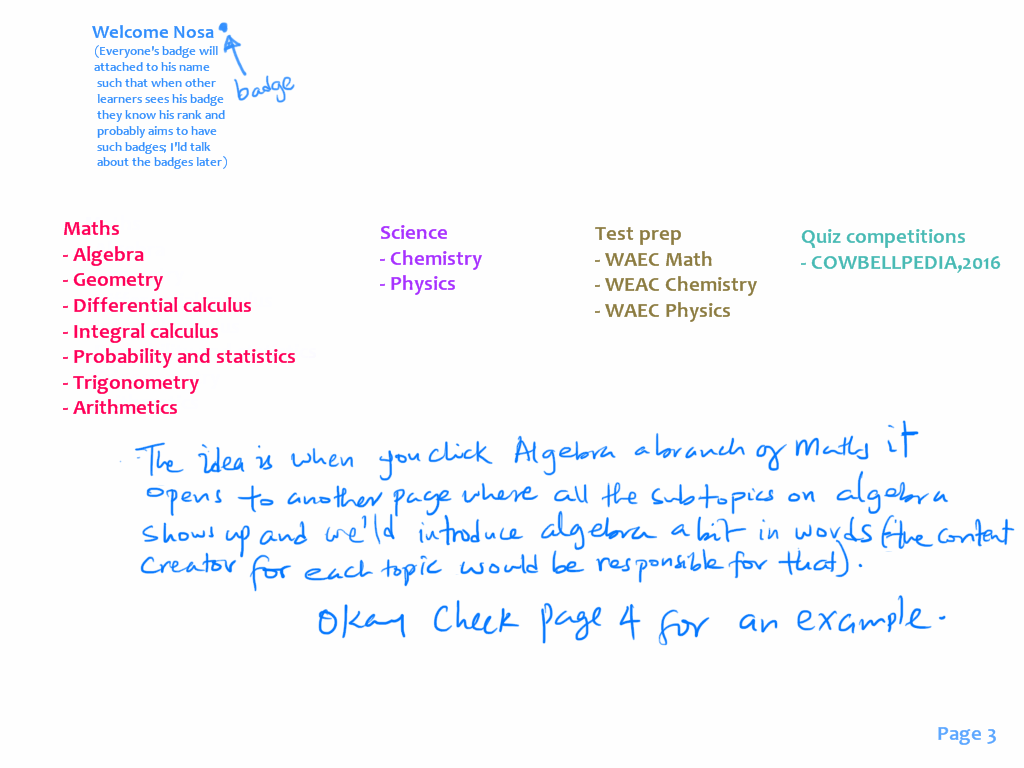 Welcome Nosa
(Everyone's badge will
attached to his name
such that when other
learners sees his badge
they know his rank and
probably aims to have
such badges; I'ld talk
about the badges later)
badge
Maths
- Algebra
- Geometry
- Differential calculus
- Integral calculus
- Probability and statistics
- Trigonometry
- Arithmetics
Science
- Chemistry
- Physics
Test prep
- WAEC Math
- WEAC Chemistry
- WAEC Physics
Quiz competitions
- COWBELLPEDIA,2016
The idea is when you click Algebra a branch of Maths it
opens to another page where all the subtopics on algebra
shows up and we'ld introduce algebra a bit in words (the content
creator for each topic would be responsible for that).
Okay Check page 4 for an example.
Page 3